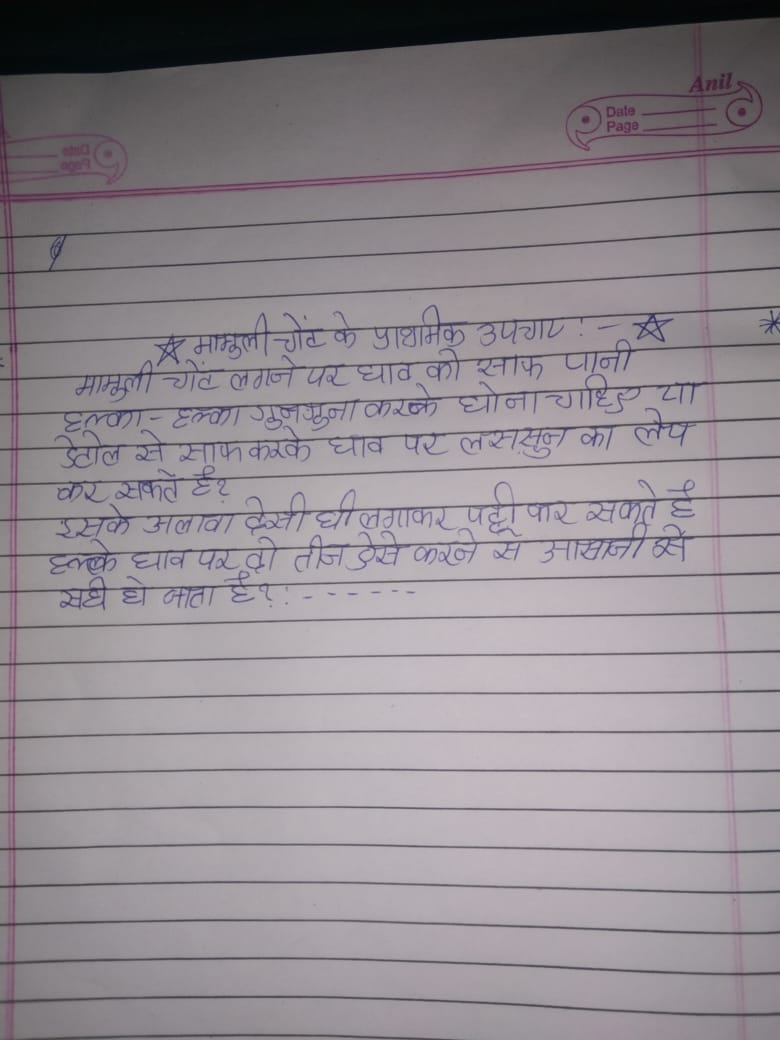 Anil
Date
Page
☆ मामुली चोंट के प्राथमिक उपचार :- ☆
मामुली चोंट लगने पर घाव को साफ पानी
हल्का - हल्का गुनगुना करके धोना चाहिए या
डेटोल से साफ करके घाव पर लससुन का लेप
कर सकते है?
इसके अलावा देसी घी लगाकर पट्टी कर सकते है
हल्के घाव पर दो तीन ऐसे करने से आसानी से
सही हो जाता है?: - - - - - -